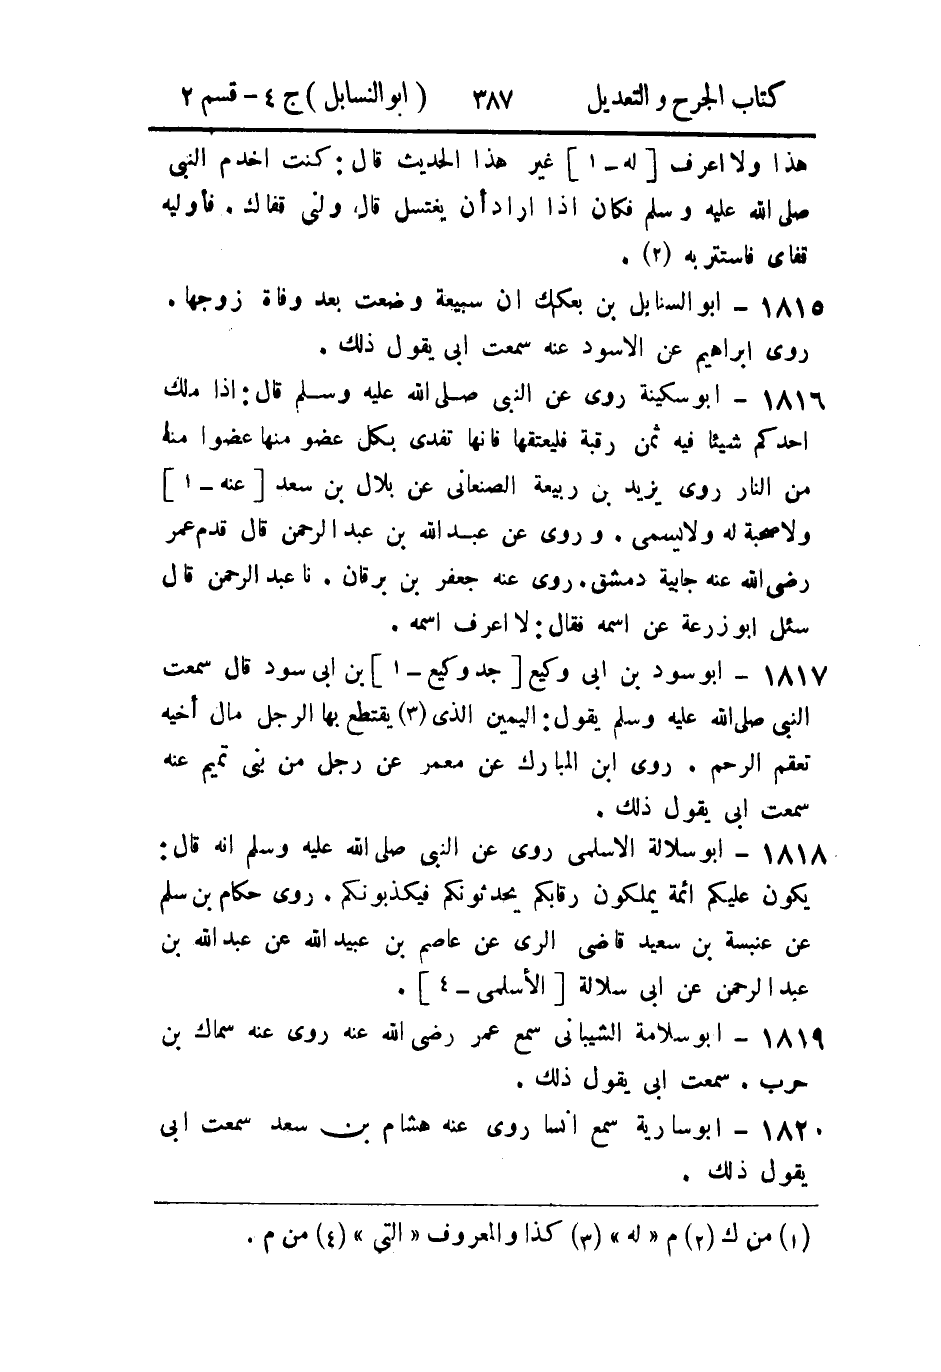 كتاب الجرح والتعديل ٣٨٧ (ابو النسابل) ج ٤ - قسم ٢
هذا ولا اعرف [له - ١] غير هذا الحديث قال: كنت اخدم النبى
صلى الله عليه وسلم فكان اذا اراد أن يغتسل قال ولنى قفاك . فأوليه
قفاى فاستتر به (٢) .
١٨١٥ - ابو السنابل بن بعكك ان سبيعة وضعت بعد وفاة زوجها .
روى ابراهيم عن الاسود عنه سمعت ابى يقول ذلك .
١٨١٦ - ابو سكينة روى عن النبى صلى الله عليه وسلم قال: اذا ملك
احدكم شيئا فيه ثمن رقبة فليعتقها فانها تفدى بكل عضو منها عضوا منه
من النار روى يزيد بن ربيعة الصنعانى عن بلال بن سعد [عنه - ١]
ولا صحبة له ولا يسمى . وروى عن عبد الله بن عبد الرحمن قال قدم عمر
رضى الله عنه جابية دمشق . روى عنه جعفر بن برقان . نا عبد الرحمن قال
سئل ابو زرعة عن اسمه فقال: لا اعرف اسمه .
١٨١٧ - ابو سود بن ابى وكيع [جد وكيع - ١] بن ابى سود قال سمعت
النبى صلى الله عليه وسلم يقول: اليمين الذى (٣) يقتطع بها الرجل مال أخيه
تعقم الرحم . روى ابن المبارك عن معمر عن رجل من بنى تميم عنه
سمعت ابى يقول ذلك .
١٨١٨ - ابو سلالة الاسلمى روى عن النبى صلى الله عليه وسلم انه قال:
يكون عليكم ائمة يملكون رقابكم يحدثونكم فيكذبونكم . روى حكام بن سلم
عن عنبسة بن سعيد قاضى الرى عن عاصم بن عبيد الله عن عبد الله بن
عبد الرحمن عن ابى سلالة [الأسلمى - ٤] .
١٨١٩ - ابو سلامة الشيبانى سمع عمر رضى الله عنه روى عنه سماك بن
حرب . سمعت ابى يقول ذلك .
١٨٢٠ - ابو سارية سمع انسا روى عنه هشام بن سعد سمعت ابى
يقول ذلك .
(١) من ك (٢) م « له » (٣) كذا والمعروف « التي » (٤) من م .